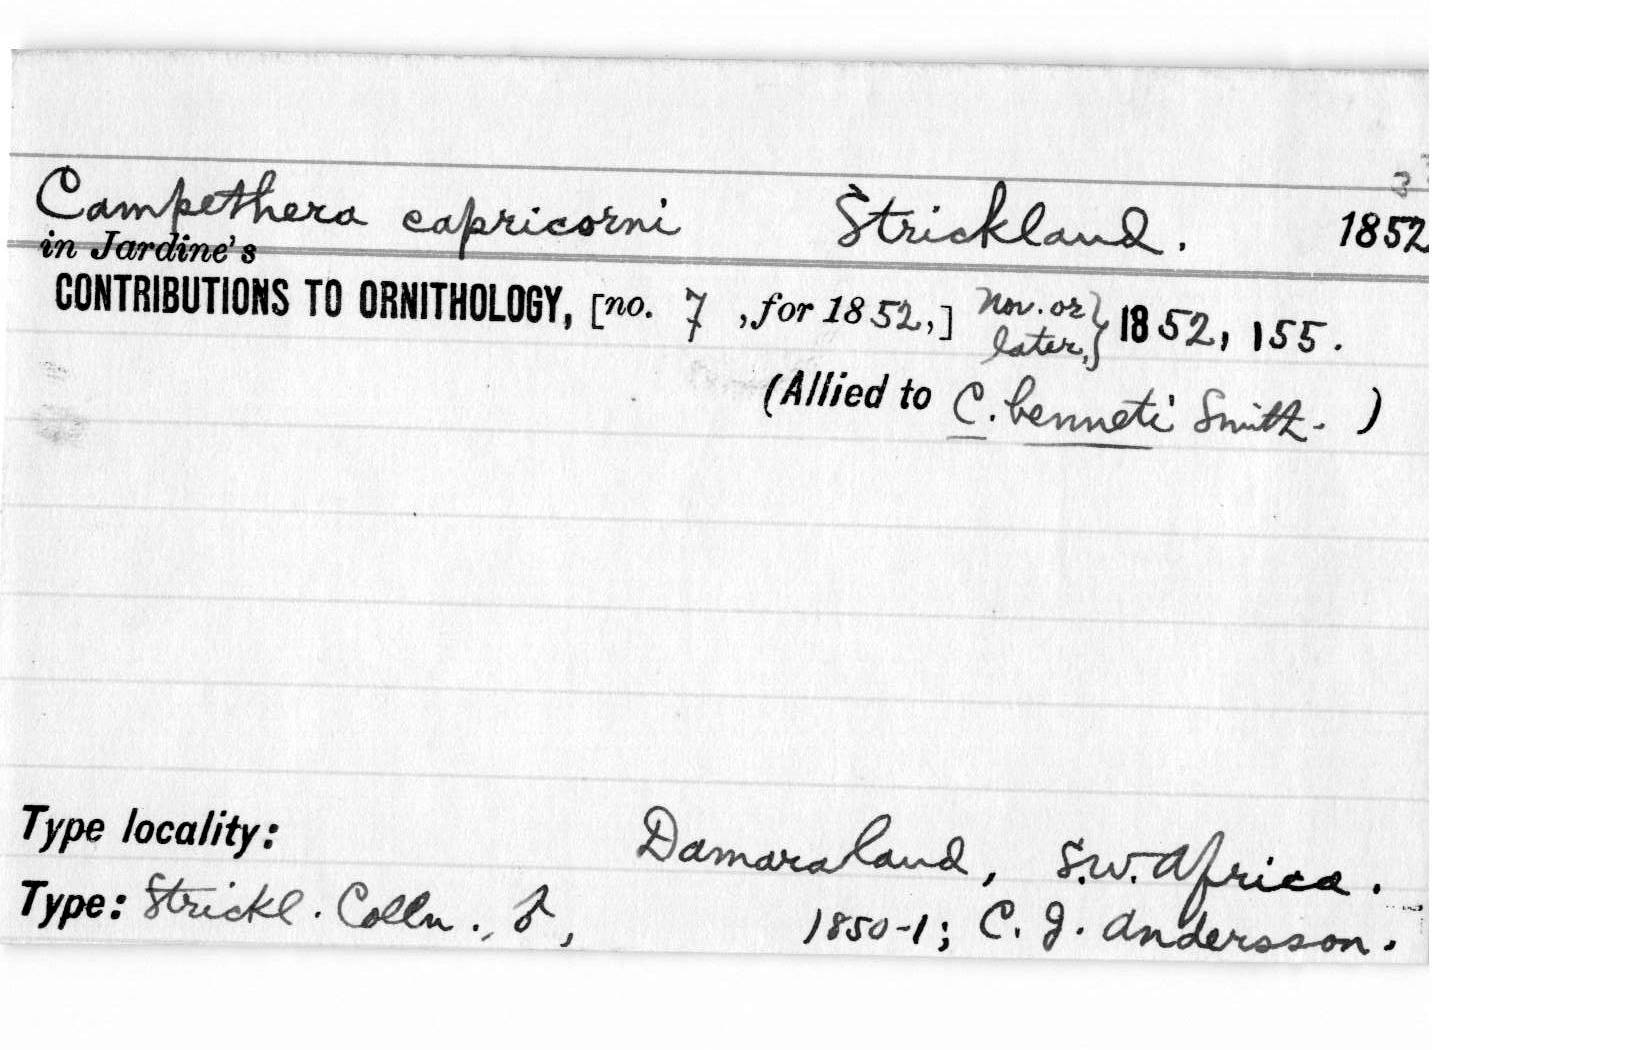 Campethera capricorni Strickland. 1852
in Jardine's
CONTRIBUTIONS TO ORNITHOLOGY, [no. 7 , for 1852,] Nov. or later,} 1852, 155.
(Allied to C. benneti Smith. )
Type locality: Damaraland, S.W. Africa.
Type: Strickl. Colln., ♂, 1850-1; C. J. Andersson.